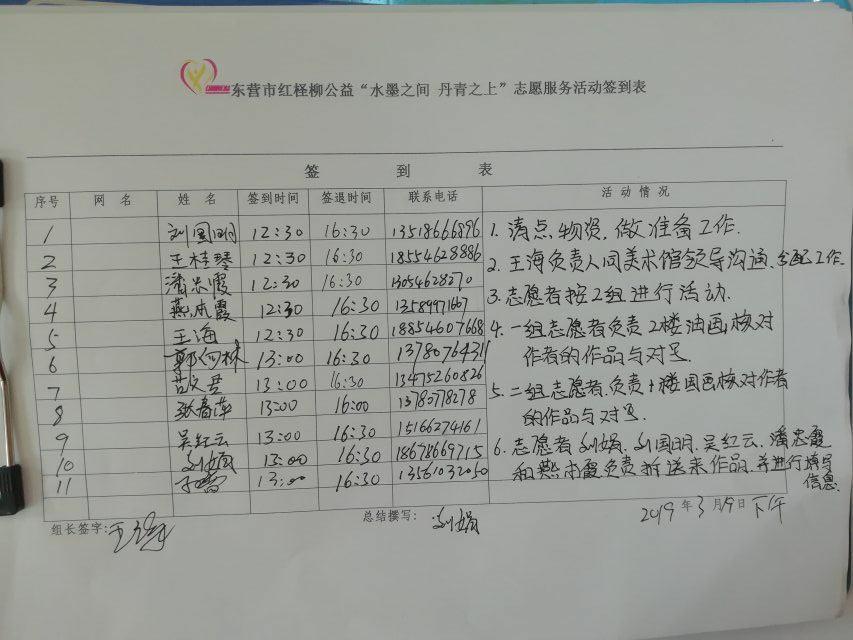 东营市红柽柳公益“水墨之间 丹青之上”志愿服务活动签到表
签 到 表
序号 网 名 姓 名 签到时间 签退时间 联系电话 活 动 情 况
1 刘国明 12:30 16:30 13518666896
2 王桂琴 12:30 16:30 18554628886
3 潘忠霞 12:30 16:30 13054628270
4 燕本霞 12:30 16:30 13589971667
5 王海 12:30 16:30 18854607668
6 13:00 16:30 1378076431
7 13:00 16:30 13475260826
8 张春萍 13:00 16:00 13780778278
9 吴红云 13:00 16:30 15166274161
10 刘娟 13:00 16:30 18678669715
11 13:00 16:30 13561032050
1. 清点物资，做准备工作.
2. 王海负责人同美术馆领导沟通、分配工作.
3. 志愿者按2组进行活动.
4. 一组志愿者负责2楼油画核对
作者的作品与对号.
5. 二组志愿者负责1楼国画核对作者
的作品与对号.
6. 志愿者刘娟、刘国明、吴红云、潘忠霞
和燕本霞负责拆送来作品，并进行填写
信息.
组长签字: 王海
总结撰写: 刘娟
2019 年 3 月 19 日 下午